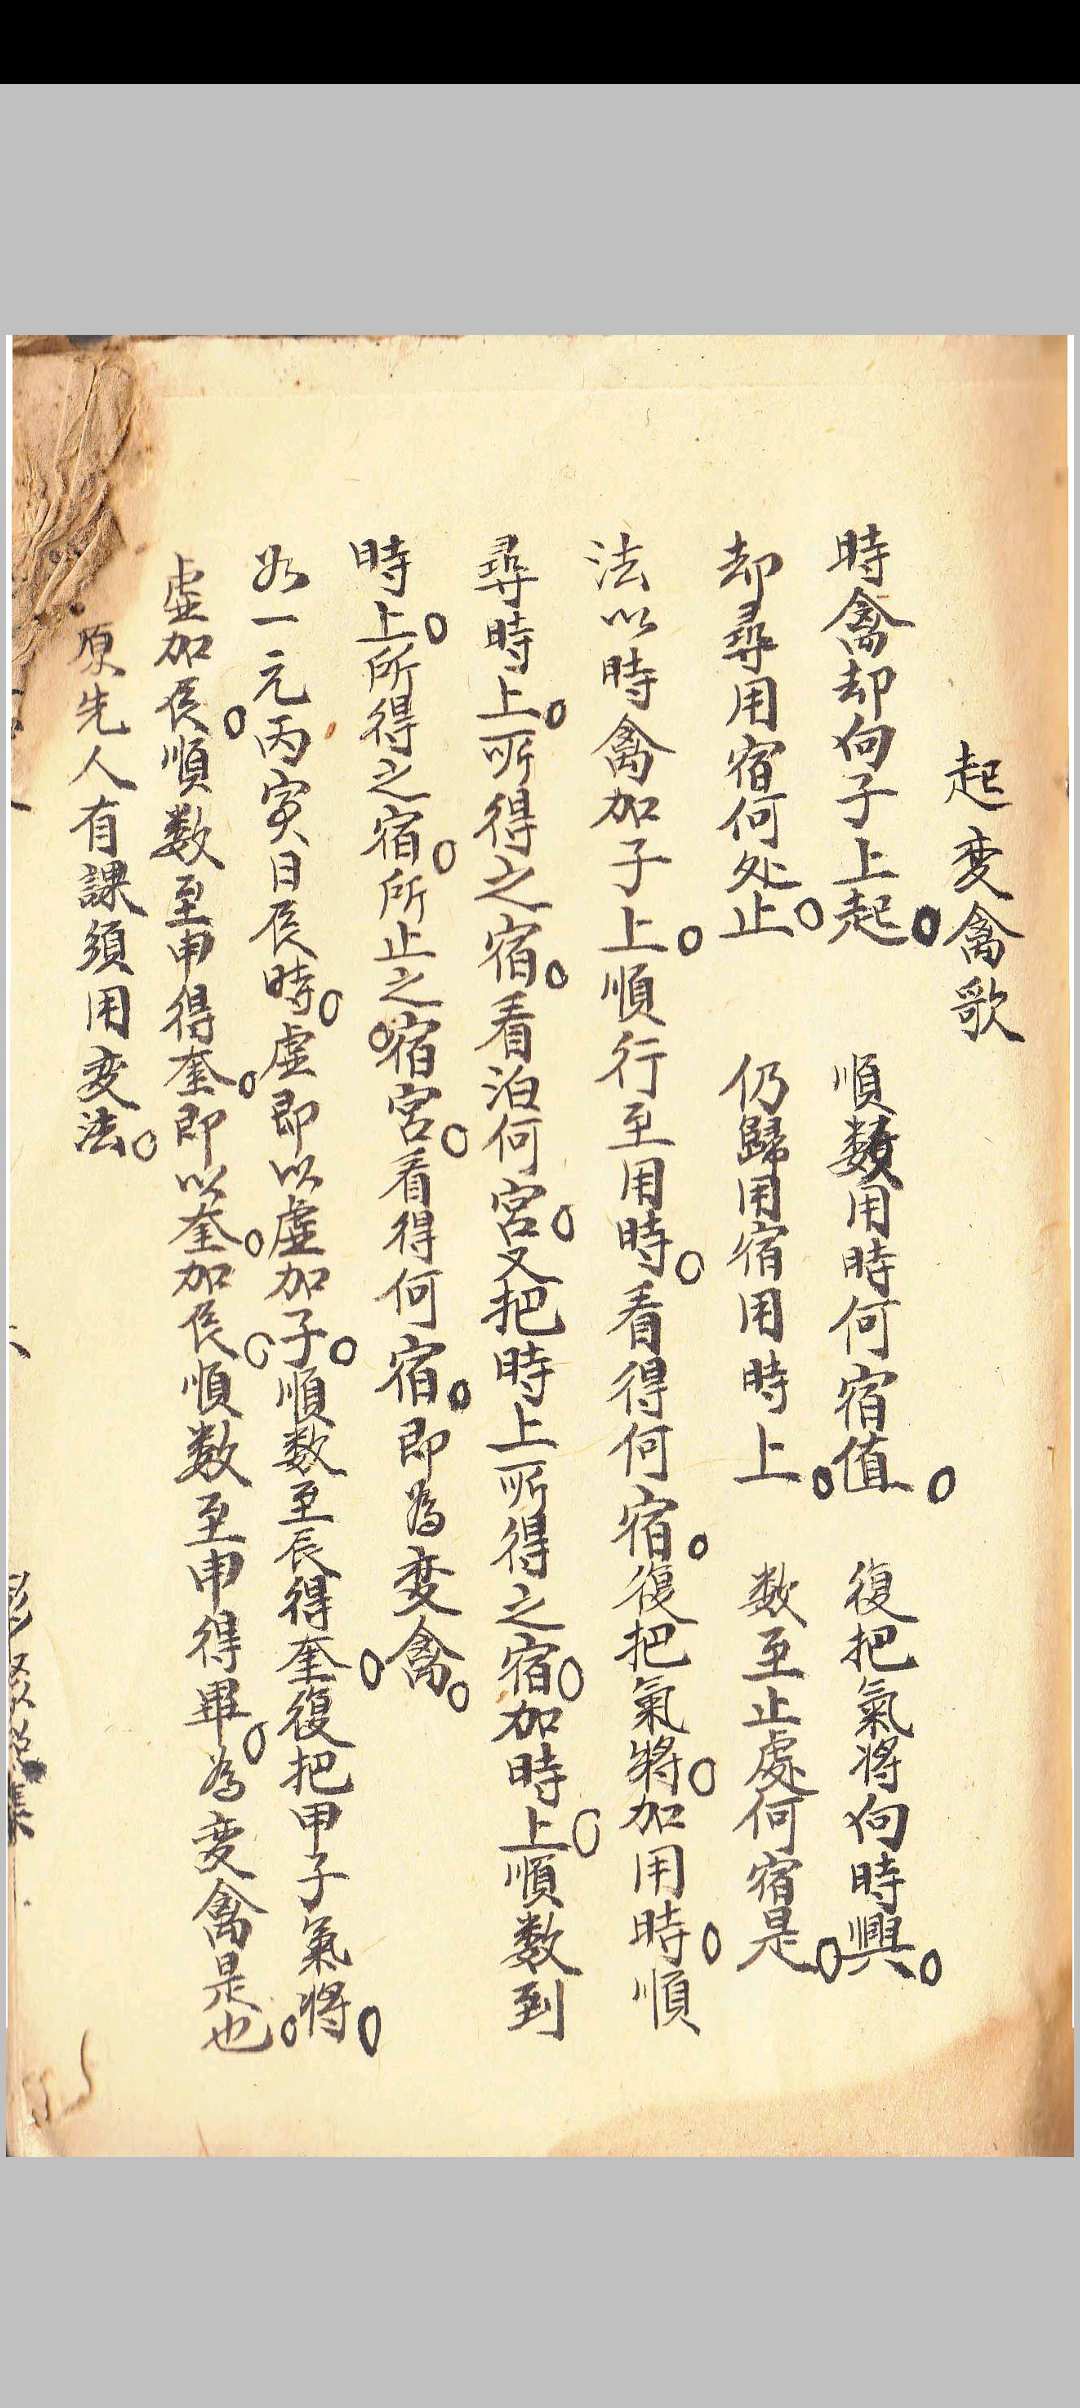 起变禽歌
時禽却向子上起。 順數用時何宿值。 復把氣將向時興。
却尋用宿何处止。 仍歸用宿用時上。 数至止處何宿是。
法以時禽加子上。順行至用時。看得何宿。復把氣將。加用時。順
尋時上。所得之宿。看泊何宮。又把時上所得之宿。加時上。順数到
時上。所得之宿。所止之。宿宮。看得何宿。即為变禽。
如一元丙寅日辰時。虛即以虛加子。順数至辰得奎。復把甲子氣將。
虛加辰。順数至申得奎。即以奎。加辰。順数至申得畢。為变禽是也。
原先人有課須用变法。
集